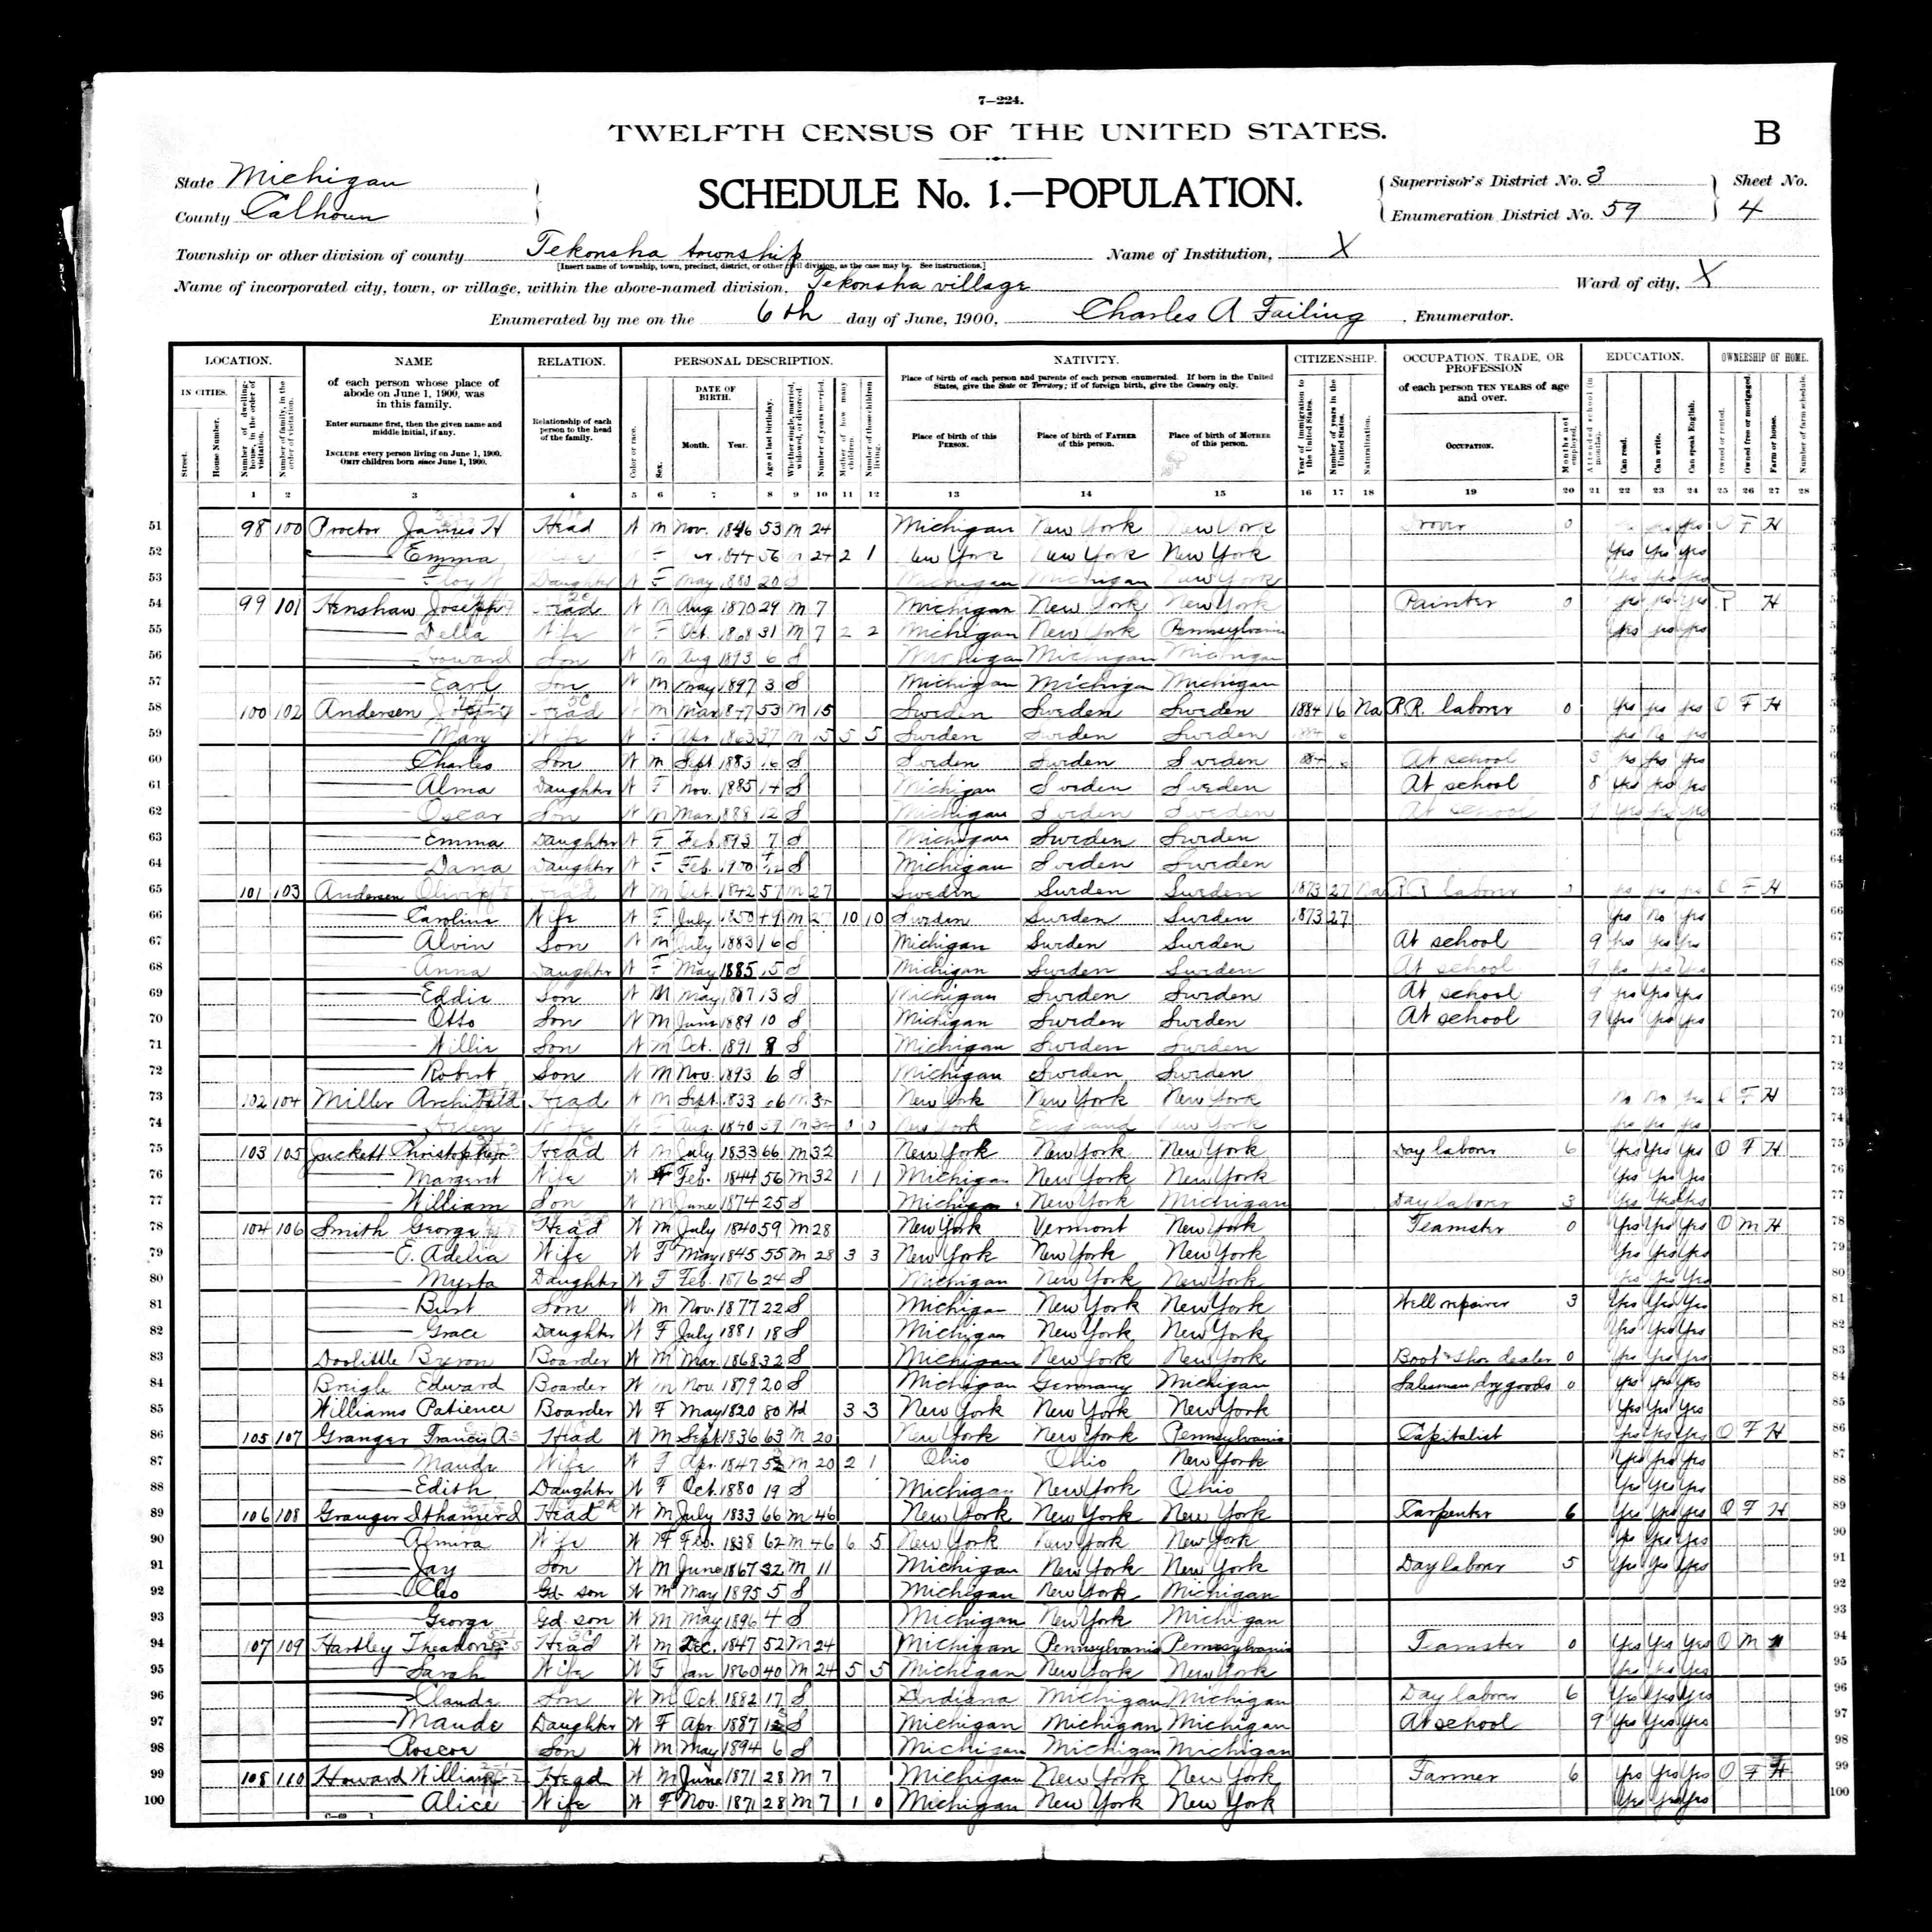 7—224.
TWELFTH CENSUS OF THE UNITED STATES.
B
State Michigan
County Calhoun
SCHEDULE No. 1.—POPULATION.
Supervisor's District No. 3
Enumeration District No. 59
Sheet No.
4
Township or other division of county Tekonsha township Name of Institution, X
[Insert name of township, town, precinct, district, or other civil division, as the case may be. See instructions.]
Name of incorporated city, town, or village, within the above-named division, Tekonsha village Ward of city, X
Enumerated by me on the 6th day of June, 1900, Charles A Failing , Enumerator.
LOCATION. NAME RELATION. PERSONAL DESCRIPTION. NATIVITY. CITIZENSHIP. OCCUPATION, TRADE, OR PROFESSION EDUCATION. OWNERSHIP OF HOME.
IN CITIES.
Street.
House Number.
Number of dwelling-house, in the order of visitation.
Number of family, in the order of visitation.
of each person whose place of abode on June 1, 1900, was in this family.
Enter surname first, then the given name and middle initial, if any.
INCLUDE every person living on June 1, 1900.
OMIT children born since June 1, 1900.
Relationship of each person to the head of the family.
Color or race.
Sex.
DATE OF BIRTH.
Month. Year.
Age at last birthday.
Whether single, married, widowed, or divorced.
Number of years married.
Mother of how many children.
Number of these children living.
Place of birth of each person and parents of each person enumerated. If born in the United States, give the State or Territory; if of foreign birth, give the Country only.
Place of birth of this PERSON.
Place of birth of FATHER of this person.
Place of birth of MOTHER of this person.
Year of immigration to the United States.
Number of years in the United States.
Naturalization.
of each person TEN YEARS of age and over.
OCCUPATION.
Months not employed.
Attended school (in months).
Can read.
Can write.
Can speak English.
Owned or rented.
Owned free or mortgaged.
Farm or house.
Number of farm schedule.
1 2 3 4 5 6 7 8 9 10 11 12 13 14 15 16 17 18 19 20 21 22 23 24 25 26 27 28
51 98 100 Proctor James H Head W M Nov. 1846 53 M 24 Michigan New York New York Drover 0 yes yes O F H
52 Emma Wife W F 1844 56 M 24 2 1 New York New York New York Yes Yes Yes
53 Daughter W F May 1880 20 S Michigan Michigan New York Yes yes yes
54 99 101 Henshaw Joseph Head W M Aug 1870 29 M 7 Michigan New York New York Painter 0 yes yes yes R H
55 Della Wife W F Oct. 1868 31 M 7 2 2 Michigan New York Pennsylvania Yes yes yes
56 Howard Son W M Aug 1893 6 S Michigan Michigan Michigan
57 Earl Son W M May 1897 3 S Michigan Michigan Michigan
58 100 102 Andersen Head W M Mar 1847 53 M 15 Sweden Sweden Sweden 1884 16 Na R.R. laborer 0 yes yes yes O F H
59 Mary Wife W F Apr 1863 37 M 15 5 5 Sweden Sweden Sweden yes No yes
60 Charles Son W M Sept 1883 16 S Sweden Sweden Sweden At school 3 yes yes yes
61 Alma Daughter W F Nov. 1885 14 S Michigan Sweden Sweden At school 8 yes yes yes
62 Oscar Son W M Mar 1888 12 S Michigan Sweden Sweden At school 9 yes yes yes
63 Emma Daughter W F Feb 1893 7 S Michigan Sweden Sweden
64 Dana Daughter W F Feb. 1900 S Michigan Sweden Sweden
65 101 103 Andersen Head W M Oct. 1842 57 M 27 Sweden Sweden Sweden 1873 27 Na R.R. laborer yes yes yes O F H
66 Caroline Wife W F July 1850 49 M 27 10 10 Sweden Sweden Sweden 1873 27 Yes No yes
67 Alvin Son W M July 1883 16 S Michigan Sweden Sweden At school 9 yes yes yes
68 Anna Daughter W F May 1885 15 S Michigan Sweden Sweden At school 9 yes yes Yes
69 Eddie Son W M May 1887 13 S Michigan Sweden Sweden At school 9 yes Yes yes
70 Otto Son W M June 1889 10 S Michigan Sweden Sweden At school 9 Yes Yes Yes
71 Willie Son W M Oct. 1891 8 S Michigan Sweden Sweden
72 Robert Son W M Nov. 1893 6 S Michigan Sweden Sweden
73 102 104 Miller Archibald Head W M Sept. 1833 66 M New York New York New York No No yes O F H
74 Wife W F Aug. 1840 59 M New York England New York yes yes yes
75 103 105 Juckett Christopher Head W M July 1833 66 M 32 New York New York New York Day laborer 6 Yes Yes Yes O F H
76 Margaret Wife W F Feb. 1844 56 M 32 1 1 Michigan New York New York Yes Yes Yes
77 William Son W M June 1874 25 S Michigan New York Michigan Day laborer 3 Yes Yes Yes
78 104 106 Smith George Head W M July 1840 59 M 28 New York Vermont New York Teamster 0 Yes Yes Yes O M H
79 E. Adelia Wife W F May 1845 55 M 28 3 3 New York New York New York Yes Yes Yes
80 Myrta Daughter W F Feb. 1876 24 S Michigan New York New York Yes Yes Yes
81 Burt Son W M Nov. 1877 22 S Michigan New York New York Well repairer 3 Yes Yes Yes
82 Grace Daughter W F July 1881 18 S Michigan New York New York Yes Yes Yes
83 Doolittle Byron Boarder W M Mar. 1868 32 S Michigan New York New York Boot & Shoe dealer 0 Yes Yes Yes
84 Brigle Edward Boarder W M Nov. 1879 20 S Michigan Germany Michigan Salesman, dry goods 0 Yes Yes Yes
85 Williams Patience Boarder W F May 1820 80 Wd 3 3 New York New York New York Yes Yes Yes
86 105 107 Granger Francis A Head W M Sept 1836 63 M 20 New York New York Pennsylvania Capitalist Yes Yes Yes O F H
87 Maude Wife W F Apr. 1847 M 20 2 1 Ohio Ohio New York Yes Yes Yes
88 Edith Daughter W F Oct. 1880 19 S Michigan New York Ohio Yes Yes Yes
89 106 108 Granger Ithamer S Head W M July 1833 66 M 46 New York New York New York Carpenter 6 Yes Yes Yes O F H
90 Almira Wife W F Feb. 1838 62 M 46 6 5 New York New York New York Yes Yes Yes
91 Jay Son W M June 1867 32 M 11 Michigan New York New York Day laborer 5 Yes Yes Yes
92 Cleo Gd- son W M May 1895 5 S Michigan New York Michigan
93 George Gd- son W M May 1896 4 S Michigan New York Michigan
94 107 109 Hartley Theadore Head W M Dec. 1847 52 M 24 Michigan Pennsylvania Pennsylvania Teamster 0 Yes Yes Yes O M H
95 Sarah Wife W F Jan 1860 40 M 24 5 5 Michigan New York New York Yes Yes Yes
96 Claude Son W M Oct. 1882 17 S Indiana Michigan Michigan Day laborer 6 Yes Yes Yes
97 Maude Daughter W F Apr. 1887 S Michigan Michigan Michigan At school 9 Yes Yes Yes
98 Roscoe Son W M May 1894 6 S Michigan Michigan Michigan
99 108 110 Howard William Head W M June 1871 28 M 7 Michigan New York New York Farmer 6 Yes Yes Yes O F H
100 Alice Wife W F Nov. 1871 28 M 7 1 0 Michigan New York New York Yes Yes Yes